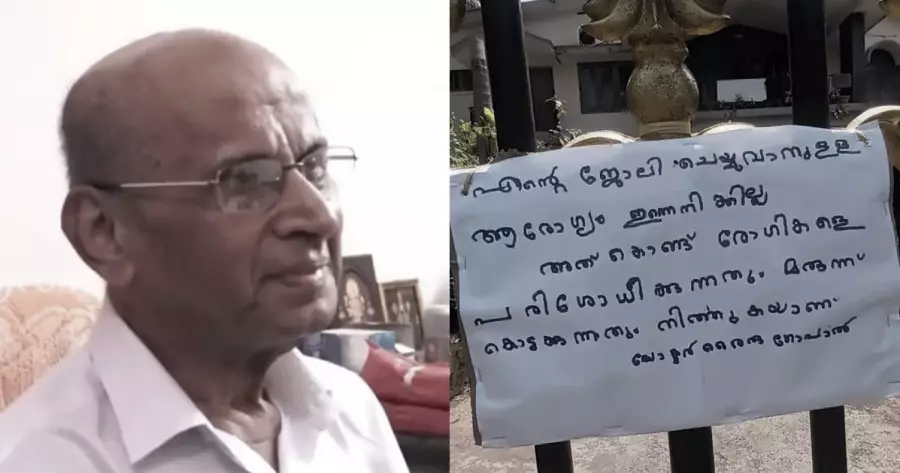 എൻ്റെ ജോലി ചെയ്യുവാനുള്ള
ആരോഗ്യം ഇന്നെനിക്കില്ല
അത് കൊണ്ട് രോഗികളെ
പരിശോധിക്കുന്നതും മരുന്ന്
കൊടുക്കുന്നതും നിർത്തുകയാണ്
ഡോക്ടർ രൈരു ഗോപാൽ